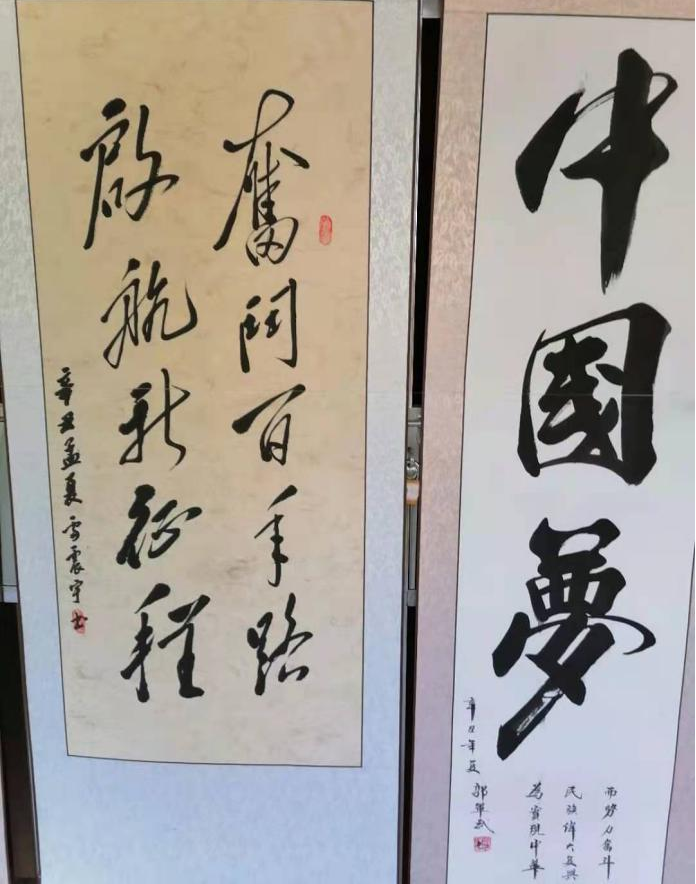 奮鬥百年路
啟航新征程
辛丑孟夏雷震宇书
中國夢
為實現中華
民族偉大复興
而努力奋斗
辛丑年夏